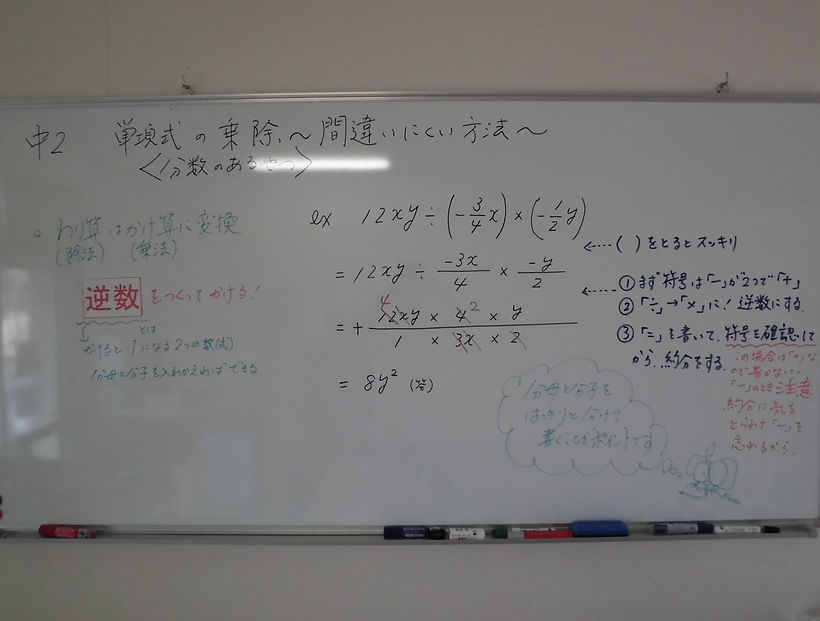 中2 単項式の乗除 〜間違いにくい方法〜
<分数のあるやつ>
。わり算はかけ算に変換
(除法) (乗法)
逆数をつくってかける!
とは
かけると1になる2つの数(式)
分母と分子を入れかえればできる
ex 12xy÷(-3/4x)×(-1/2y)
=12xy÷ -3x/4 × -y/2
=+ 12xy × 4 × y / 1 × 3x × 2
4 2
= 8y² (答)
←---- ( )をとるとスッキリ
←---- ①まず符号は「-」が2つで「+」
②「÷」→「×」に! 逆数にする.
③「=」を書いて、符号を確認して
から、約分をする.
この場合は「+」な
ので書かない
「-」のとき注意
約分に気を
とられて「-」を
忘れるから.
分母と分子を
はっきりと分けて
書くことがポイントです